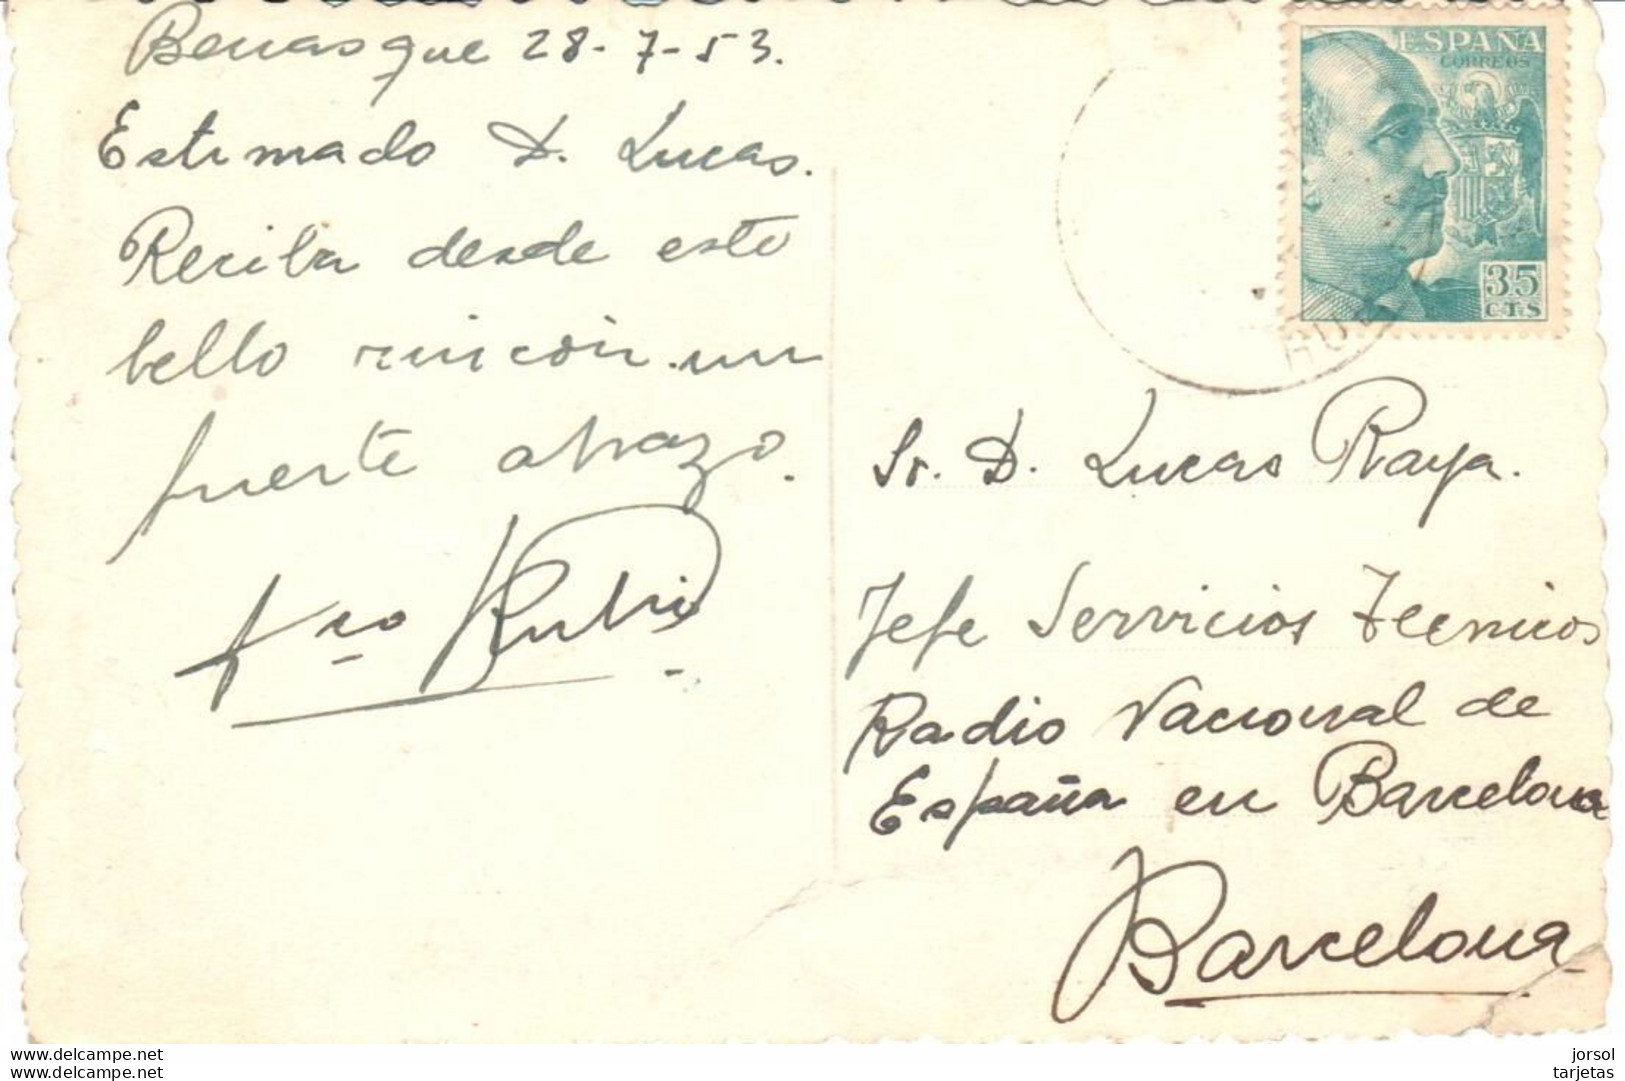 Benasque 28-7-53.
Estimado D. Lucas.
Reciba desde este
bello rincón un
fuerte abrazo.
Fco Rubio
ESPAÑA
CORREOS
35
CTS
HUE
Sr. D. Lucas Raya.
Jefe Servicios Tecnicos
Radio Nacional de
España en Barcelona
Barcelona
www.delcampe.net
www.delcampe.net
jorsol
tarjetas